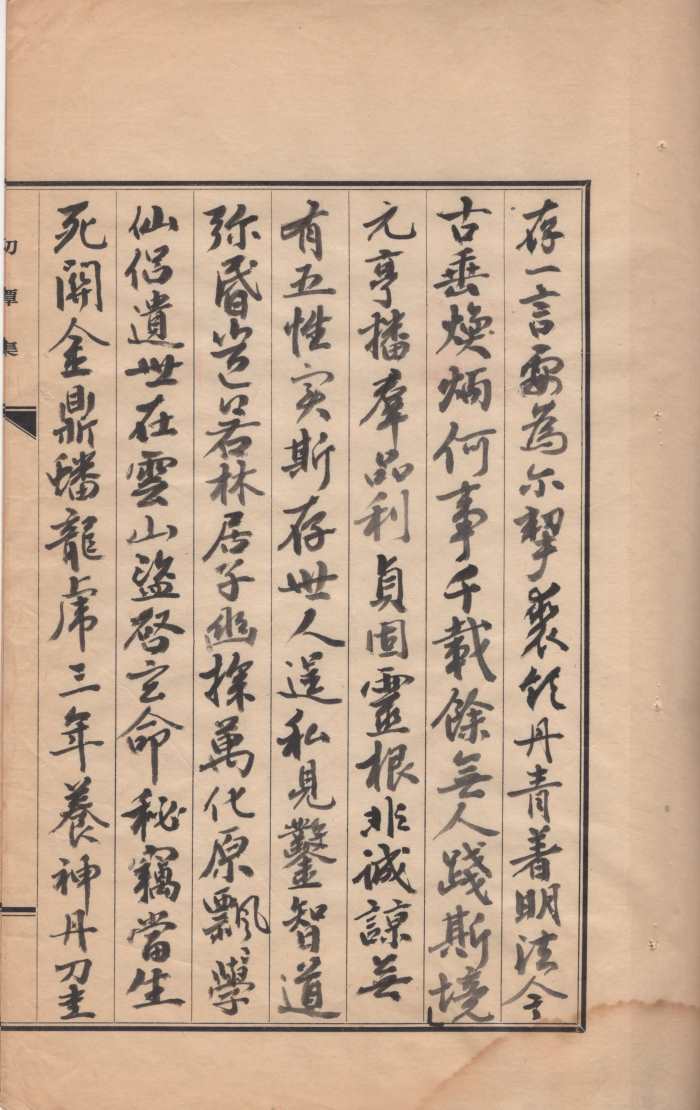 存一言要為尔挈裘領丹青着明法今
古垂煥炳何事千載餘無人踐斯境
元亨播羣品利貞固靈根非誠諒無
有五性实斯存世人逞私見鑿智道
弥昏豈若林居子幽探萬化原飄〻學
仙侣遺世在雲山盜啓玄命秘竊當生
死關金鼎蟠龍虎三年養神丹刀圭